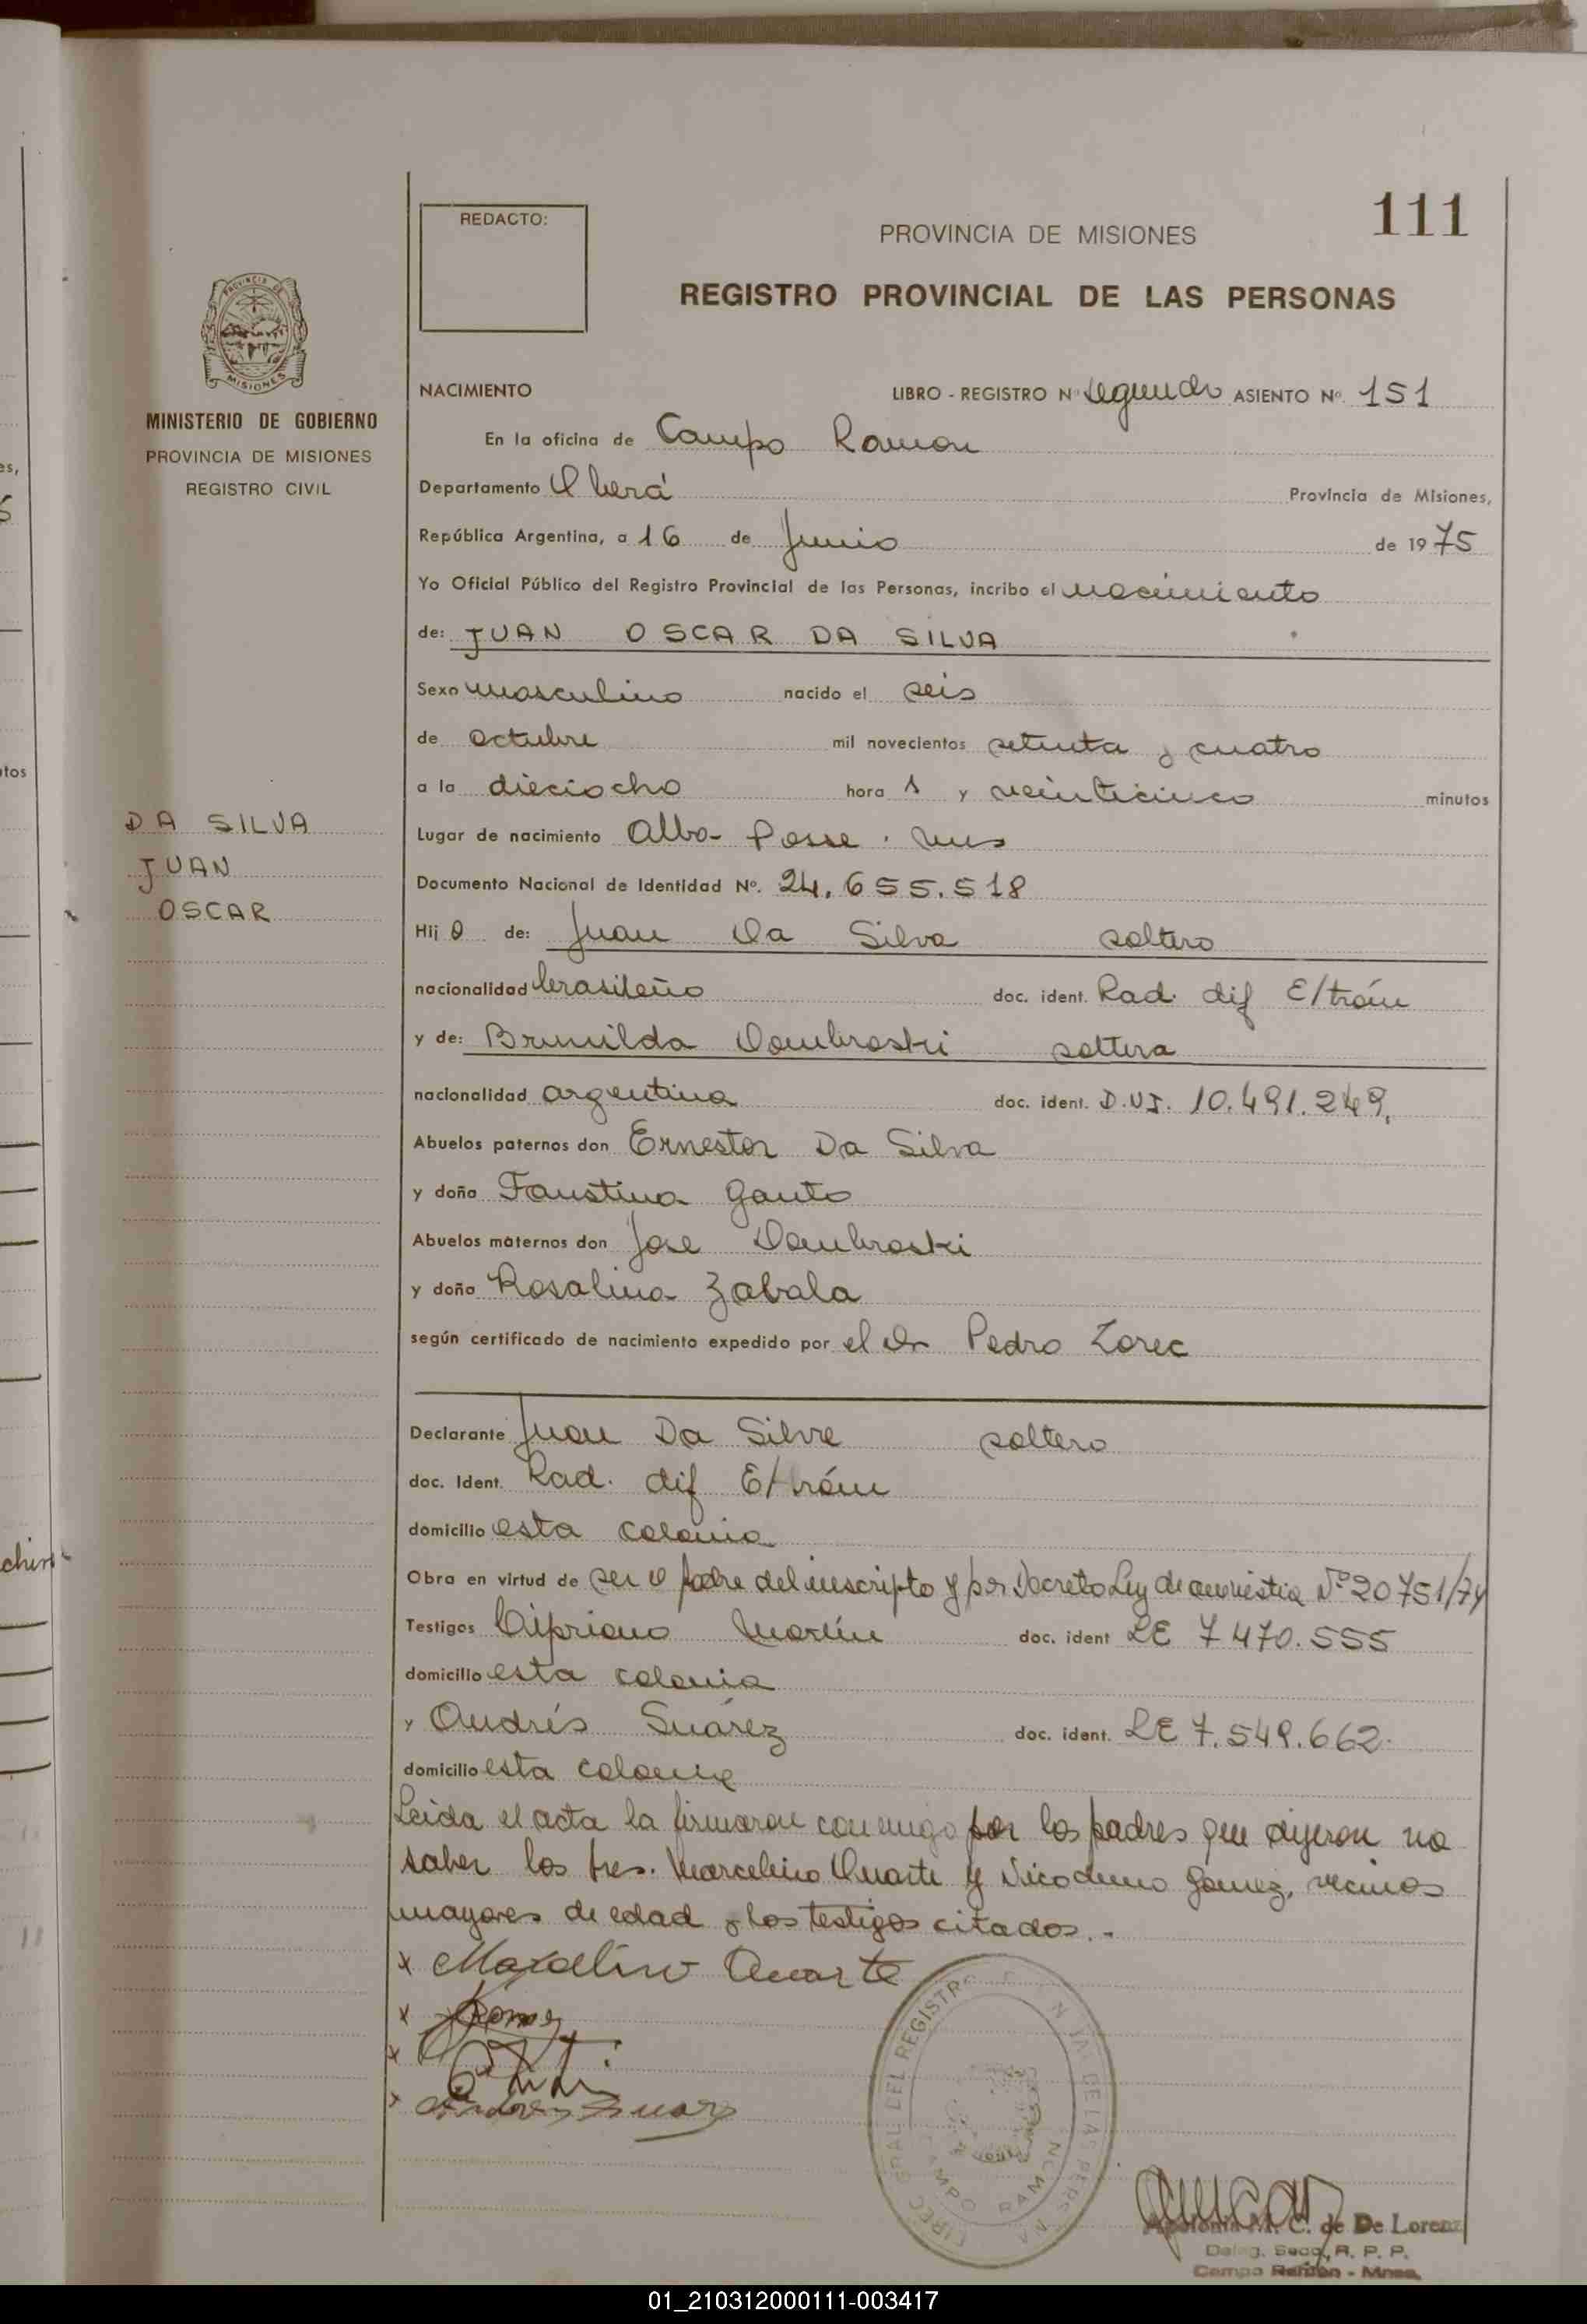 111
REDACTO:
PROVINCIA DE MISIONES
REGISTRO PROVINCIAL DE LAS PERSONAS
PROVINCIA DE
MISIONES
MINISTERIO DE GOBIERNO
PROVINCIA DE MISIONES
REGISTRO CIVIL
NACIMIENTO LIBRO - REGISTRO Nº segundo ASIENTO Nº. 151
En la oficina de Campo Ramon
Departamento Oberá Provincia de Misiones,
República Argentina, a 16 de Junio de 1975
Yo Oficial Público del Registro Provincial de las Personas, incribo el nacimiento
de: JUAN OSCAR DA SILVA
Sexo masculino nacido el seis
de octubre mil novecientos setenta y cuatro
a la dieciocho hora s y veinticinco minutos
DA SILVA
JUAN
OSCAR
Lugar de nacimiento Alba Posse. Mnes
Documento Nacional de Identidad Nº. 24.655.518
Hij o de: Juan Da Silva soltero
nacionalidad brasileño doc. ident. Rad. dif E/trám
y de: Brunilda Dombroski soltera
nacionalidad argentina doc. ident. D.N.I. 10.491.249.
Abuelos paternos don Ernestor Da Silva
y doña Faustina Gauto
Abuelos maternos don Jose Dombroski
y doña Rosalina Zabala
según certificado de nacimiento expedido por el Dr Pedro Zorec
Declarante Juan Da Silva soltero
doc. Ident. Rad. dif E/trám
domicilio esta colonia
Obra en virtud de ser el padre del inscripto y por Decreto Ley de amnistia Nº 20751/74
Testigos Cipriano Martin doc. ident LE 7470.555
domicilio esta colonia
y Andrés Suárez doc. ident. LE 7.549.662.
domicilio esta colonia
Leida el acta la firmaron conmigo por los padres que dijeron no
saber los tres. Marcelino Duarte y Nicodemo Gómez, vecinos
mayores de edad y los testigos citados.-
x Marcelino Duarte
x Gomez
x
x Andres Suarez
CAMPO RAMON
Apolonia M. C. de De Lorenz
Deleg. Secc. R. P. P.
Campo Ramón - Mnes.
01_210312000111-003417